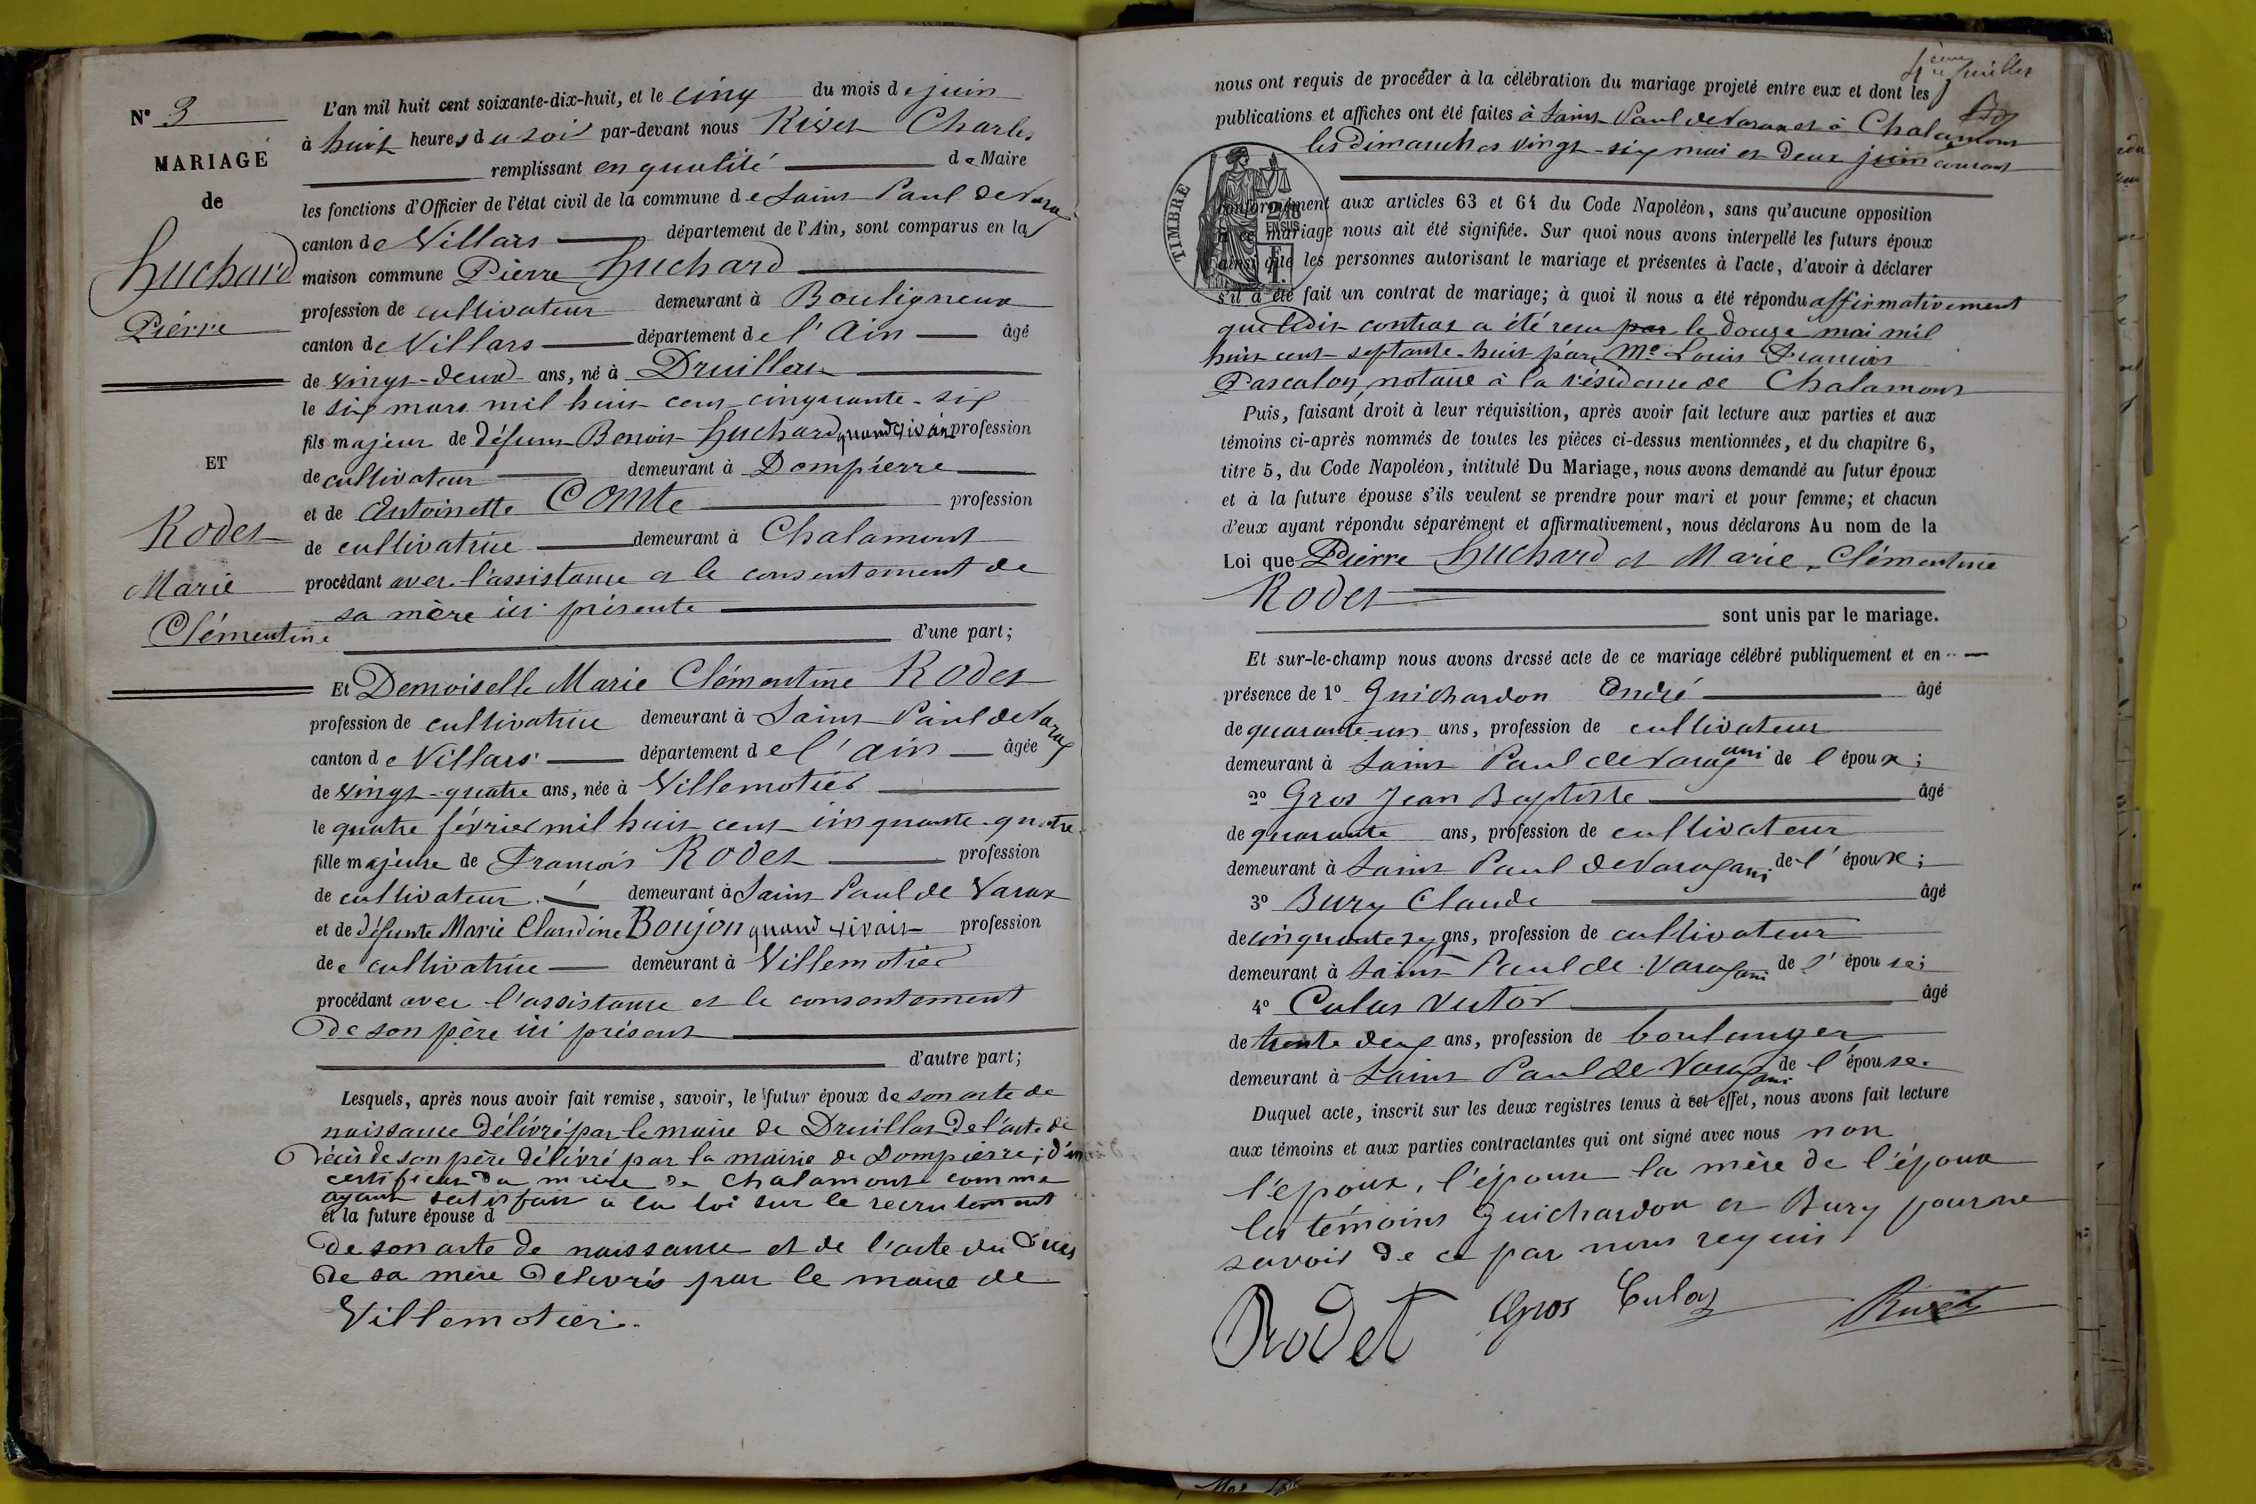 N° 3
MARIAGE
de
Huchard
Pierre
ET
Rodet
Marie
Clémentine
L'an mil huit cent soixante-dix-huit, et le cinq du mois de juin
à huit heures du soir par-devant nous Rivet Charles
remplissant en qualité de Maire
les fonctions d'Officier de l'état civil de la commune de Saint Paul de Varax
canton de Villars département de l'Ain, sont comparus en la
maison commune Pierre Huchard
profession de cultivateur demeurant à Bouligneux
canton de Villars département de l'Ain âgé
de vingt-deux ans, né à Druillat
le six mars mil huit cent cinquante-six
fils majeur de défunt Benoit Huchard quand vivait profession
de cultivateur demeurant à Dompierre
et de Antoinette Comte profession
de cultivatrice demeurant à Chalamont
procédant avec l'assistance et le consentement de
sa mère ici présente
d'une part;
Et Demoiselle Marie Clémentine Rodet
profession de cultivatrice demeurant à Saint Paul de Varax
canton de Villars département de l'Ain âgée
de vingt-quatre ans, née à Villemotier
le quatre février mil huit cent cinquante-quatre
fille majeure de François Rodet profession
de cultivateur demeurant à Saint Paul de Varax
et de défunte Marie Claudine Boujon quand vivait profession
de cultivatrice demeurant à Villemotier
procédant avec l'assistance et le consentement
de son père ici présent
d'autre part;
Lesquels, après nous avoir fait remise, savoir, le futur époux de son acte de
naissance délivré par le maire de Druillat de l'acte de
décès de son père délivré par la mairie de Dompierre; d'un
certificat du maire de Chalamont comme
ayant satisfait à la loi sur le recrutement
et la future épouse d
de son acte de naissance et de l'acte du décès
de sa mère délivrés par le maire de
Villemotier.
4ème feuillet
nous ont requis de procéder à la célébration du mariage projeté entre eux et dont les
publications et affiches ont été faites à Saint Paul de Varax et à Chalamont
les dimanches vingt-six mai et deux juin courant
TIMBRE
2/10 EN SUS
conformément aux articles 63 et 64 du Code Napoléon, sans qu'aucune opposition
à ce mariage nous ait été signifiée. Sur quoi nous avons interpellé les futurs époux
ainsi que les personnes autorisant le mariage et présentes à l'acte, d'avoir à déclarer
s'il a été fait un contrat de mariage; à quoi il nous a été répondu affirmativement
que ledit contrat a été reçu par le douze mai mil
huit cent septante-huit par Me Louis François
Pascalon, notaire à la résidence de Chalamont
Puis, faisant droit à leur réquisition, après avoir fait lecture aux parties et aux
témoins ci-après nommés de toutes les pièces ci-dessus mentionnées, et du chapitre 6,
titre 5, du Code Napoléon, intitulé Du Mariage, nous avons demandé au futur époux
et à la future épouse s'ils veulent se prendre pour mari et pour femme; et chacun
d'eux ayant répondu séparément et affirmativement, nous déclarons Au nom de la
Loi que Pierre Huchard et Marie-Clémentine
Rodet
sont unis par le mariage.
Et sur-le-champ nous avons dressé acte de ce mariage célébré publiquement et en
présence de 1° Guichardon André âgé
de quarante-un ans, profession de cultivateur
demeurant à Saint Paul de Varax ami de l'époux;
2° Gros Jean Baptiste âgé
de quarante ans, profession de cultivateur
demeurant à Saint Paul de Varax ami de l'époux;
3° Bury Claude âgé
de cinquante six ans, profession de cultivateur
demeurant à Saint Paul de Varax ami de l'épouse;
4° Culas Victor âgé
de trente deux ans, profession de boulanger
demeurant à Saint Paul de Varax ami de l'épouse.
Duquel acte, inscrit sur les deux registres tenus à cet effet, nous avons fait lecture
aux témoins et aux parties contractantes qui ont signé avec nous non
l'époux, l'épouse la mère de l'époux
les témoins Guichardon et Bury pour ne
savoir de ce par nous requis
Rodet Gros Culas Rivet